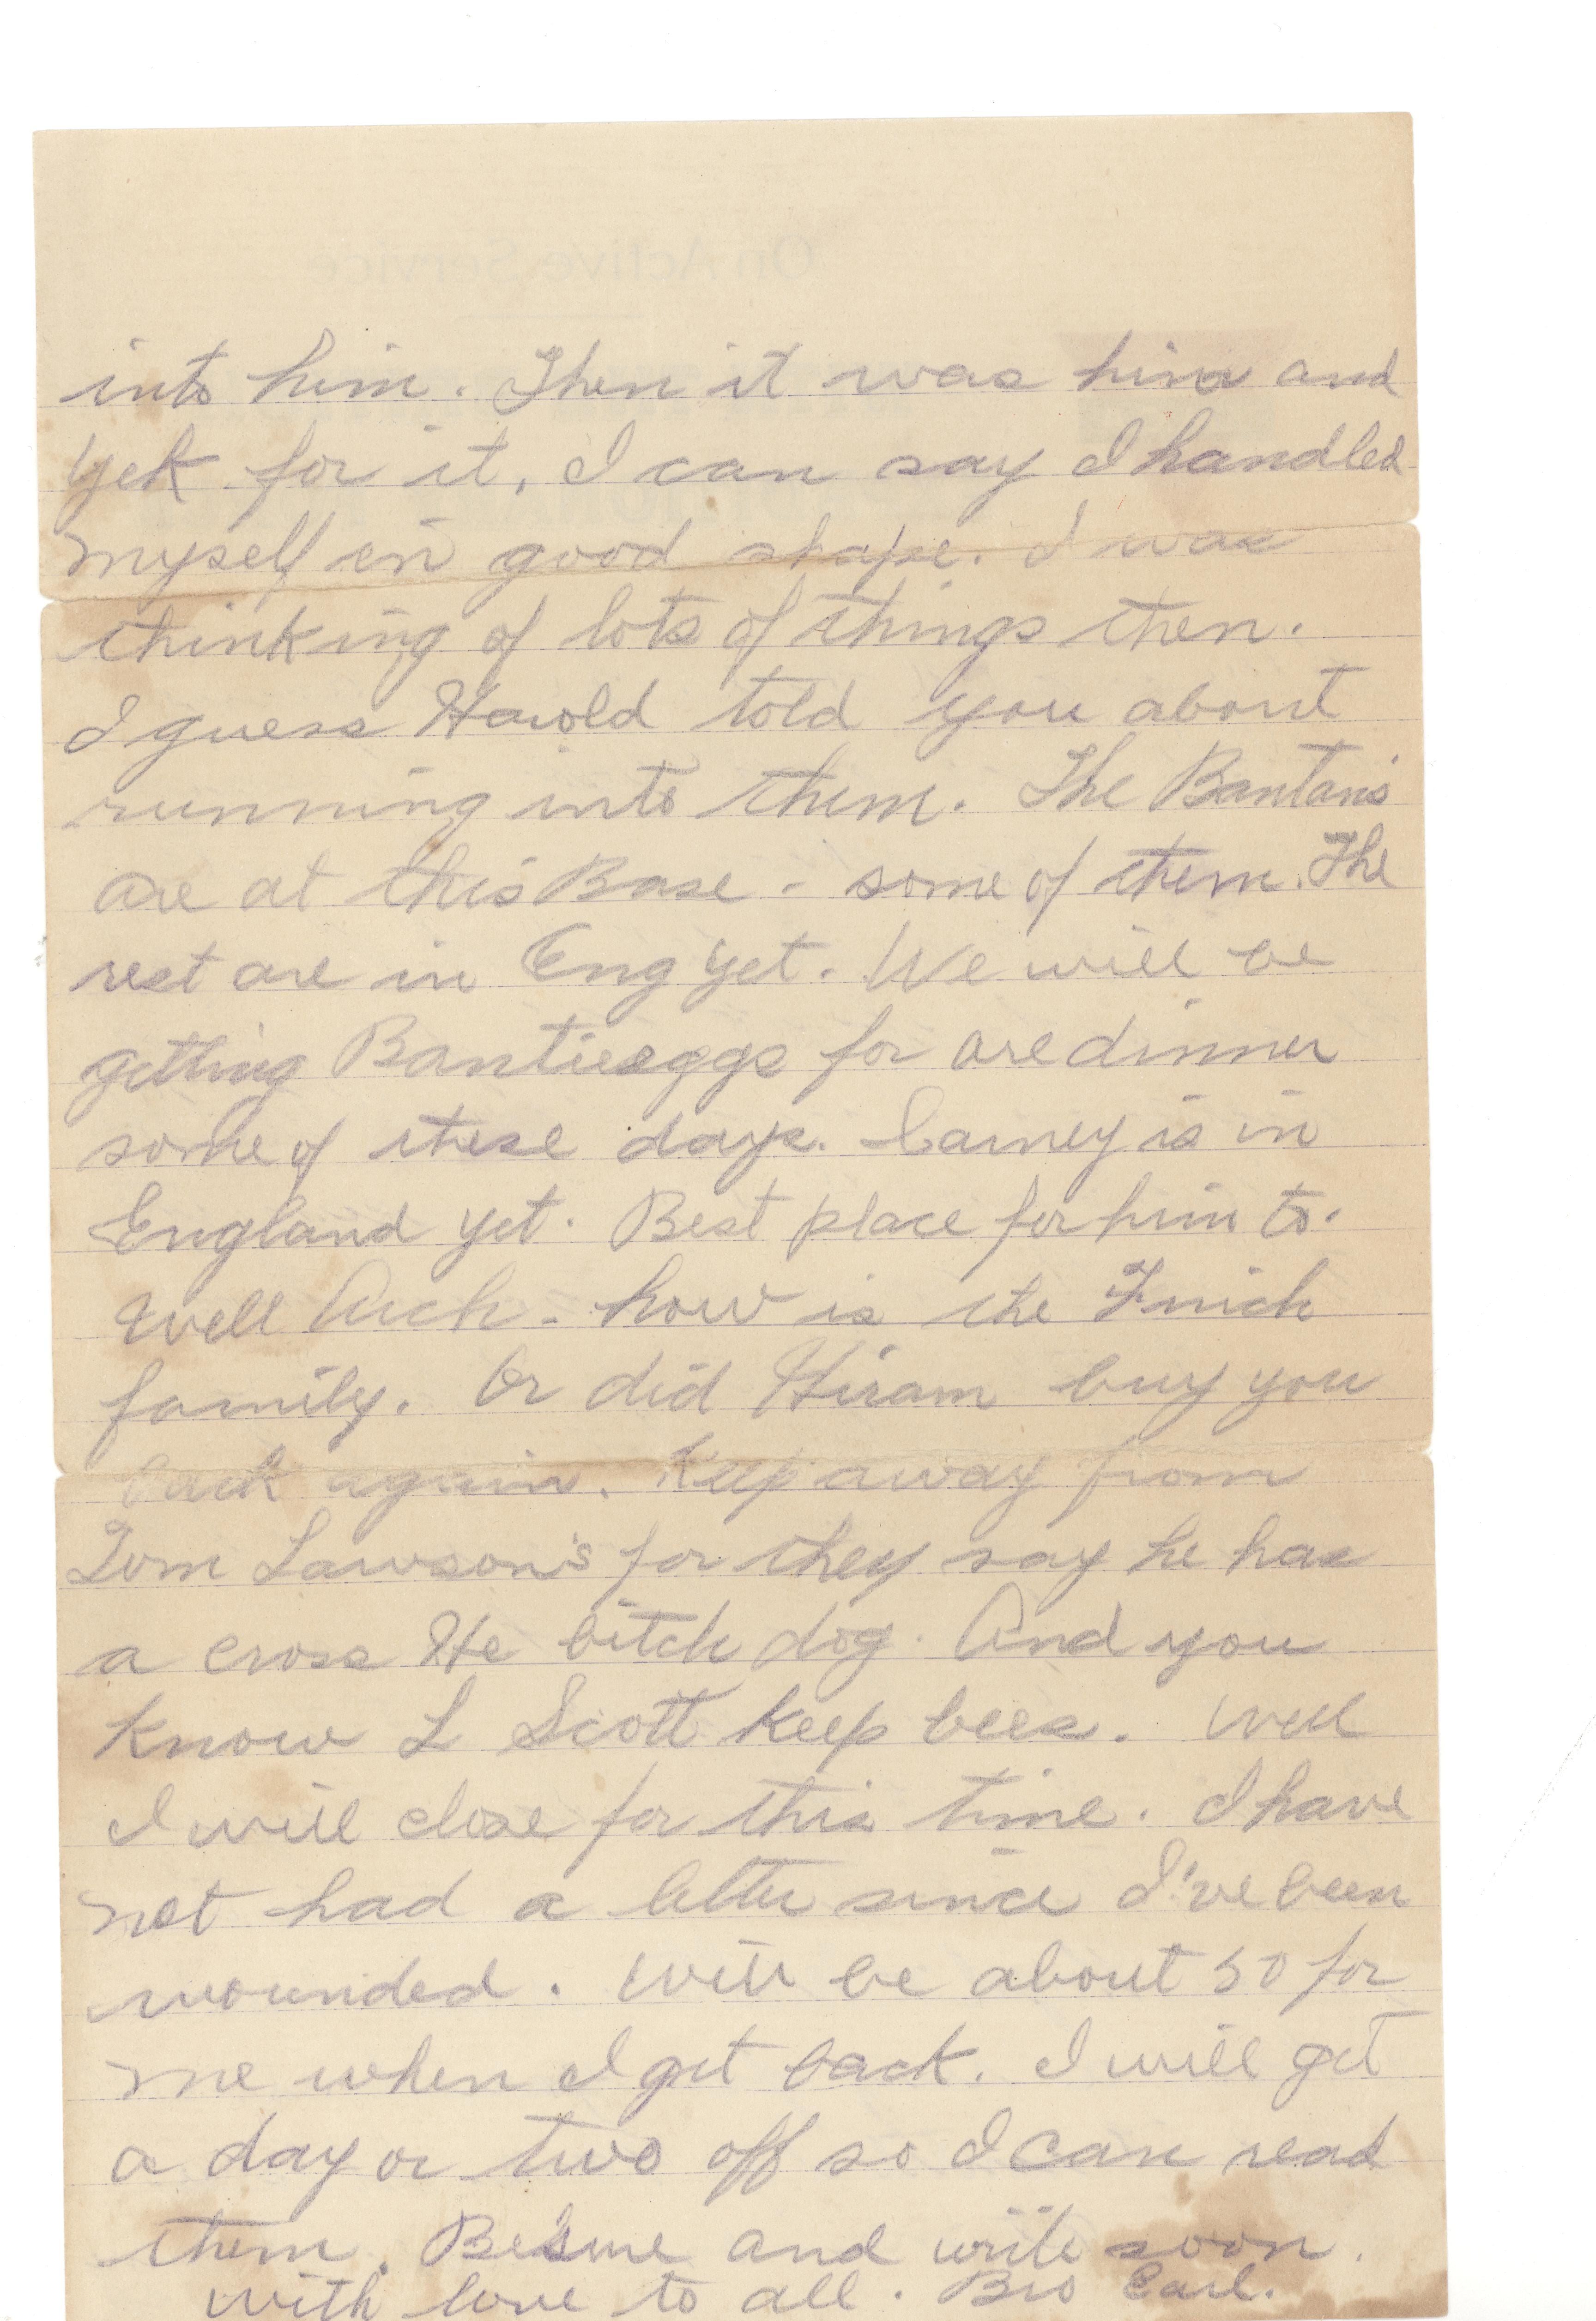 On Active Service
into him. Then it was him and
yek for it. I can say I handled
myself in good shape. I was
thinking of lots of things then.
I guess Harold told you about
running into them. The Bantans
are at this Base - some of them. The
rest are in Eng yet. We will be
getting Bantieeggs for are dinner
some of these days. Carney is in
England yet. Best place for him to.
Well Arch - how is the
family. Or did Hiram buy you
back again. Keep away from
Tom Lawson's for they say he has
a cross He bitch dog. And you
know L Scott keep bees. Well
I will close for this time. I have
not had a letter since I've been
wounded. Will be about 50 for
me when I get back. I will get
a day or two off so I can read
them. Besure and write soon.
with love to all. Bro Earl.